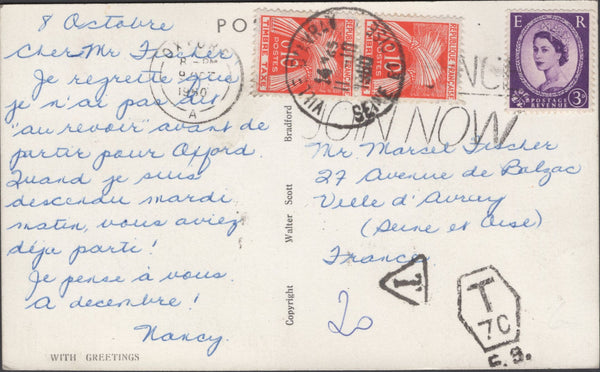 8 Octobre
Cher Mr Fischer
Je regrette que
je n'ai pas dit
"au revoir" avant de
partir pour Oxford.
Quand je suis
descendu mardi
matin, vous aviez
déja parti!
Je pense à vous.
A decembre!
Nancy.
WITH GREETINGS
PO
8 - PM
9
1960
A
Copyright Walter Scott Bradford
TIMBRE TAXE
POSTES
REPUBLIQUE FRANÇAISE
VILLE D'AVRAY
JOIN NOW
E R
POSTAGE
REVENUE
3D
Mr Marcel Fischer
27 Avenue de Balzac
Ville d'Avray
(Seine et Oise)
France
T
20
T
7C
F.B.